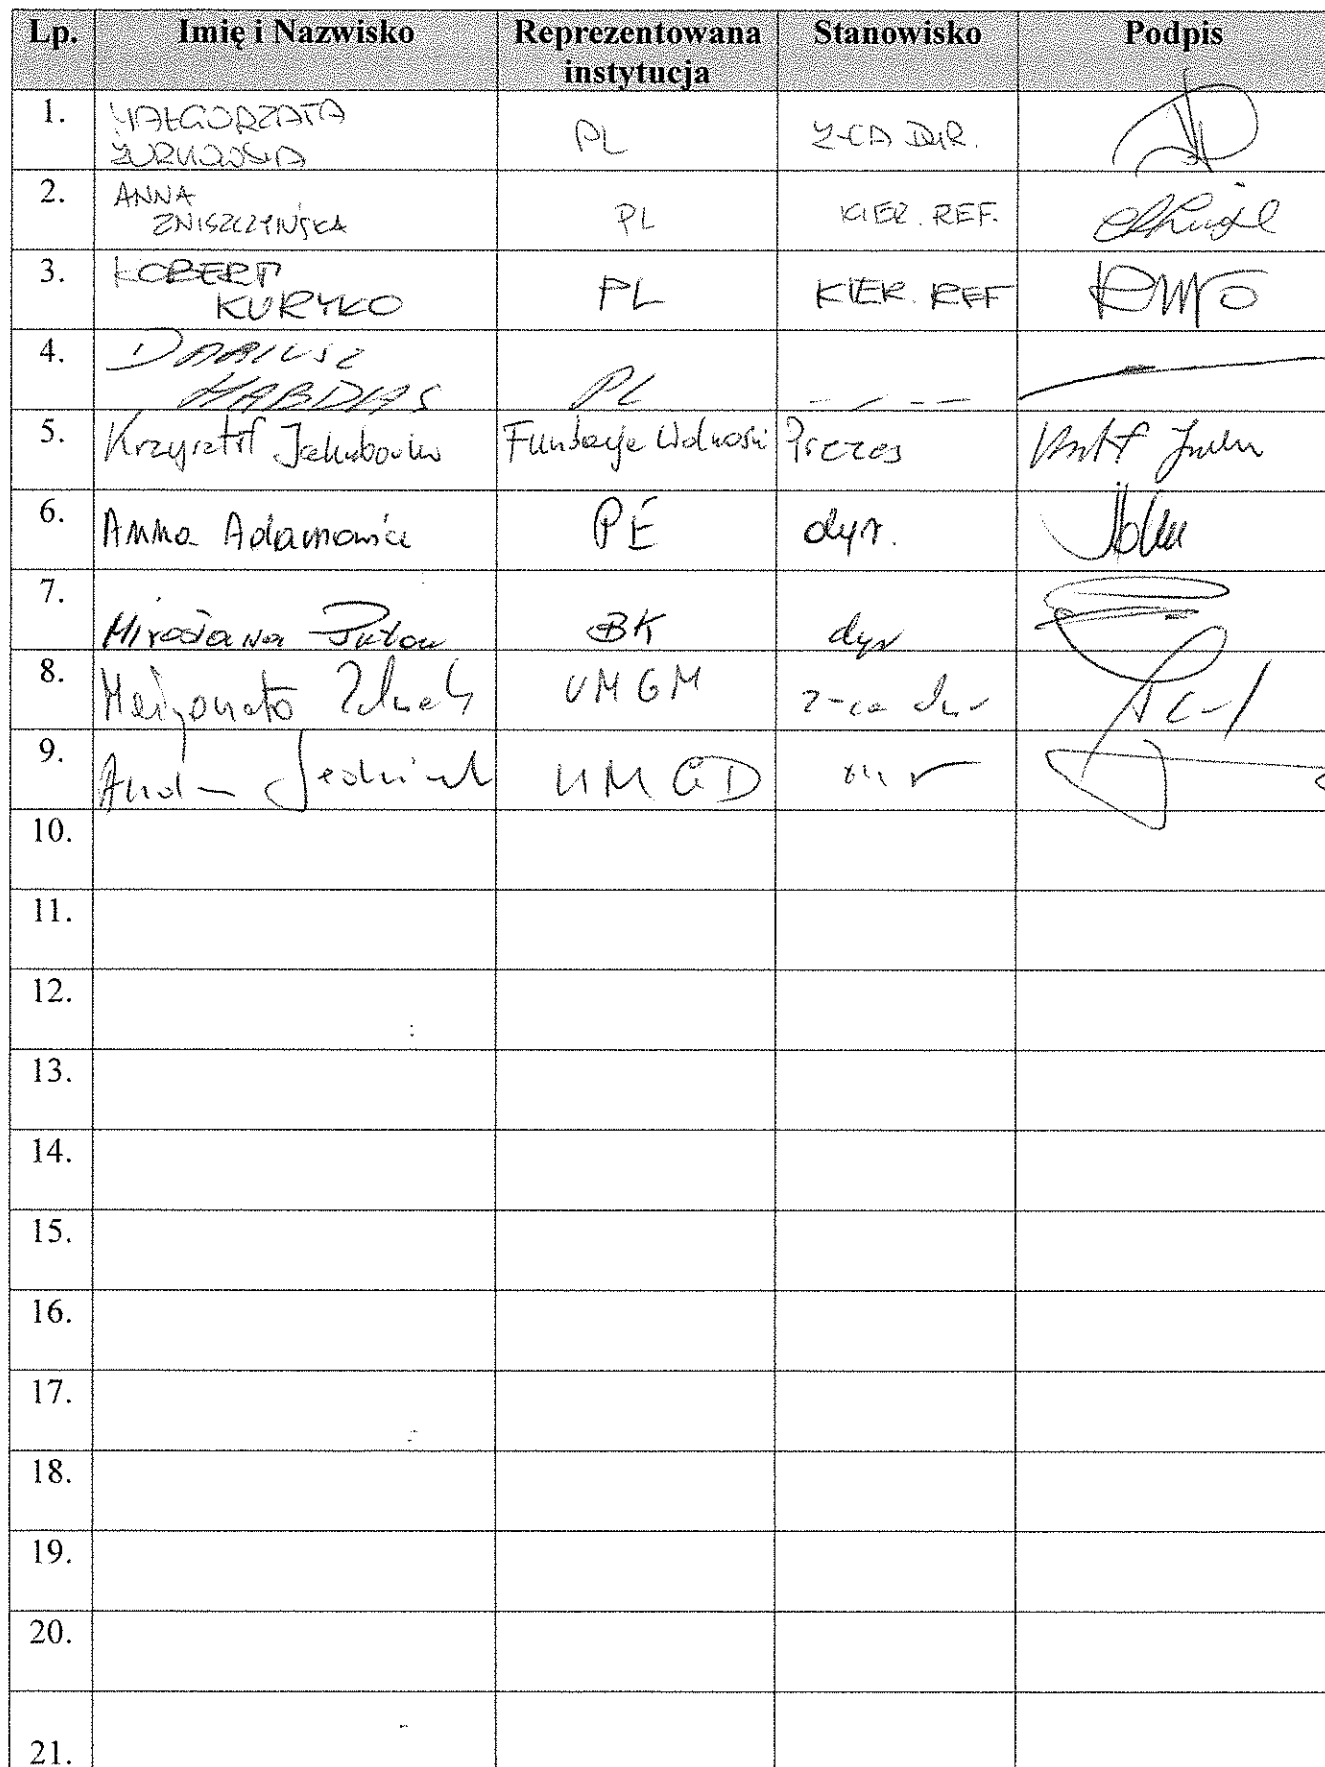 Lp. Imię i Nazwisko Reprezentowana instytucja Stanowisko Podpis
1. MAŁGORZATA ŻURKOWSKA PL Z-CA DYR.
2. ANNA ZNISZCZYŃSKA PL KIER. REF.
3. ROBERT KURYKO PL KIER. REF
4. DARIUSZ HABDAS PL
5. Krzysztof Jakubowski Fundacja Wolności Prezes
6. Anna Adamowicz PE dyr.
7. Mirosława BK dyr
8. Małgorzata UMGM z-ca
9. UM GD
10.
11.
12.
13.
14.
15.
16.
17.
18.
19.
20.
21.